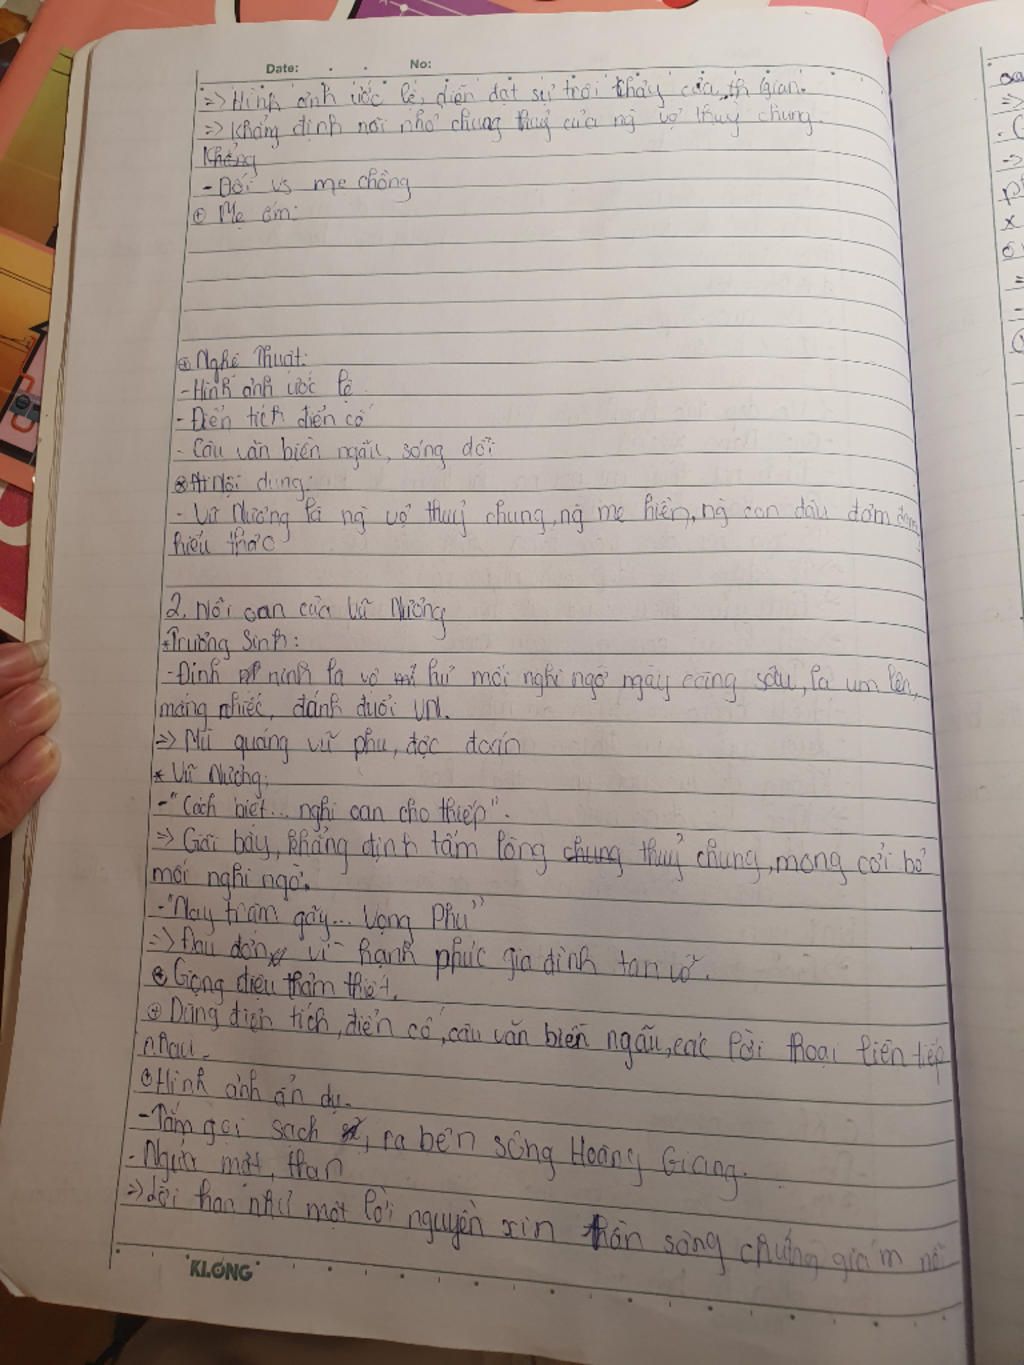 Date: No:
=> Hình ảnh ước lệ, diễn đạt sự trôi chảy của th gian.
=> Khẳng định nỗi nhớ chung thuỷ của ng vợ thuỷ chung.
Khẳng
- Đối vs mẹ chồng
+ Mẹ ốm:
+ Nghệ thuật:
- Hình ảnh ước lệ
- Điển tích điển cố
- Câu văn biền ngẫu, sóng đôi
Nội dung:
- Vũ Nương là ng vợ thuỷ chung, ng mẹ hiền, ng con dâu đảm đang
hiếu thảo
2. Nỗi oan của Vũ Nương
* Trương Sinh:
- Đinh ninh là vợ hư mối nghi ngờ ngày càng sâu, la um lên,
mắng nhiếc, đánh đuổi VN.
=> Mù quáng vũ phu, độc đoán
* Vũ Nương:
- "Cách biệt... nghi oan cho thiếp".
=> Giãi bày, khẳng định tấm lòng chung thuỷ chung, mong cởi bỏ
mối nghi ngờ.
- "Nay trâm gãy... Vọng Phu"
=> Đau đớn vì hạnh phúc gia đình tan vỡ.
+ Giọng điệu thảm thiết.
+ Dùng điện tích, điển cố, câu văn biền ngẫu, các lời thoại liên tiếp
nhau.
+ Hình ảnh ẩn dụ.
- Tắm gội sạch, ra bến sông Hoàng Giang.
- Ngửa mặt, than
=> Lời than như một lời nguyền xin thần sông chứng giám nỗi
KLONG